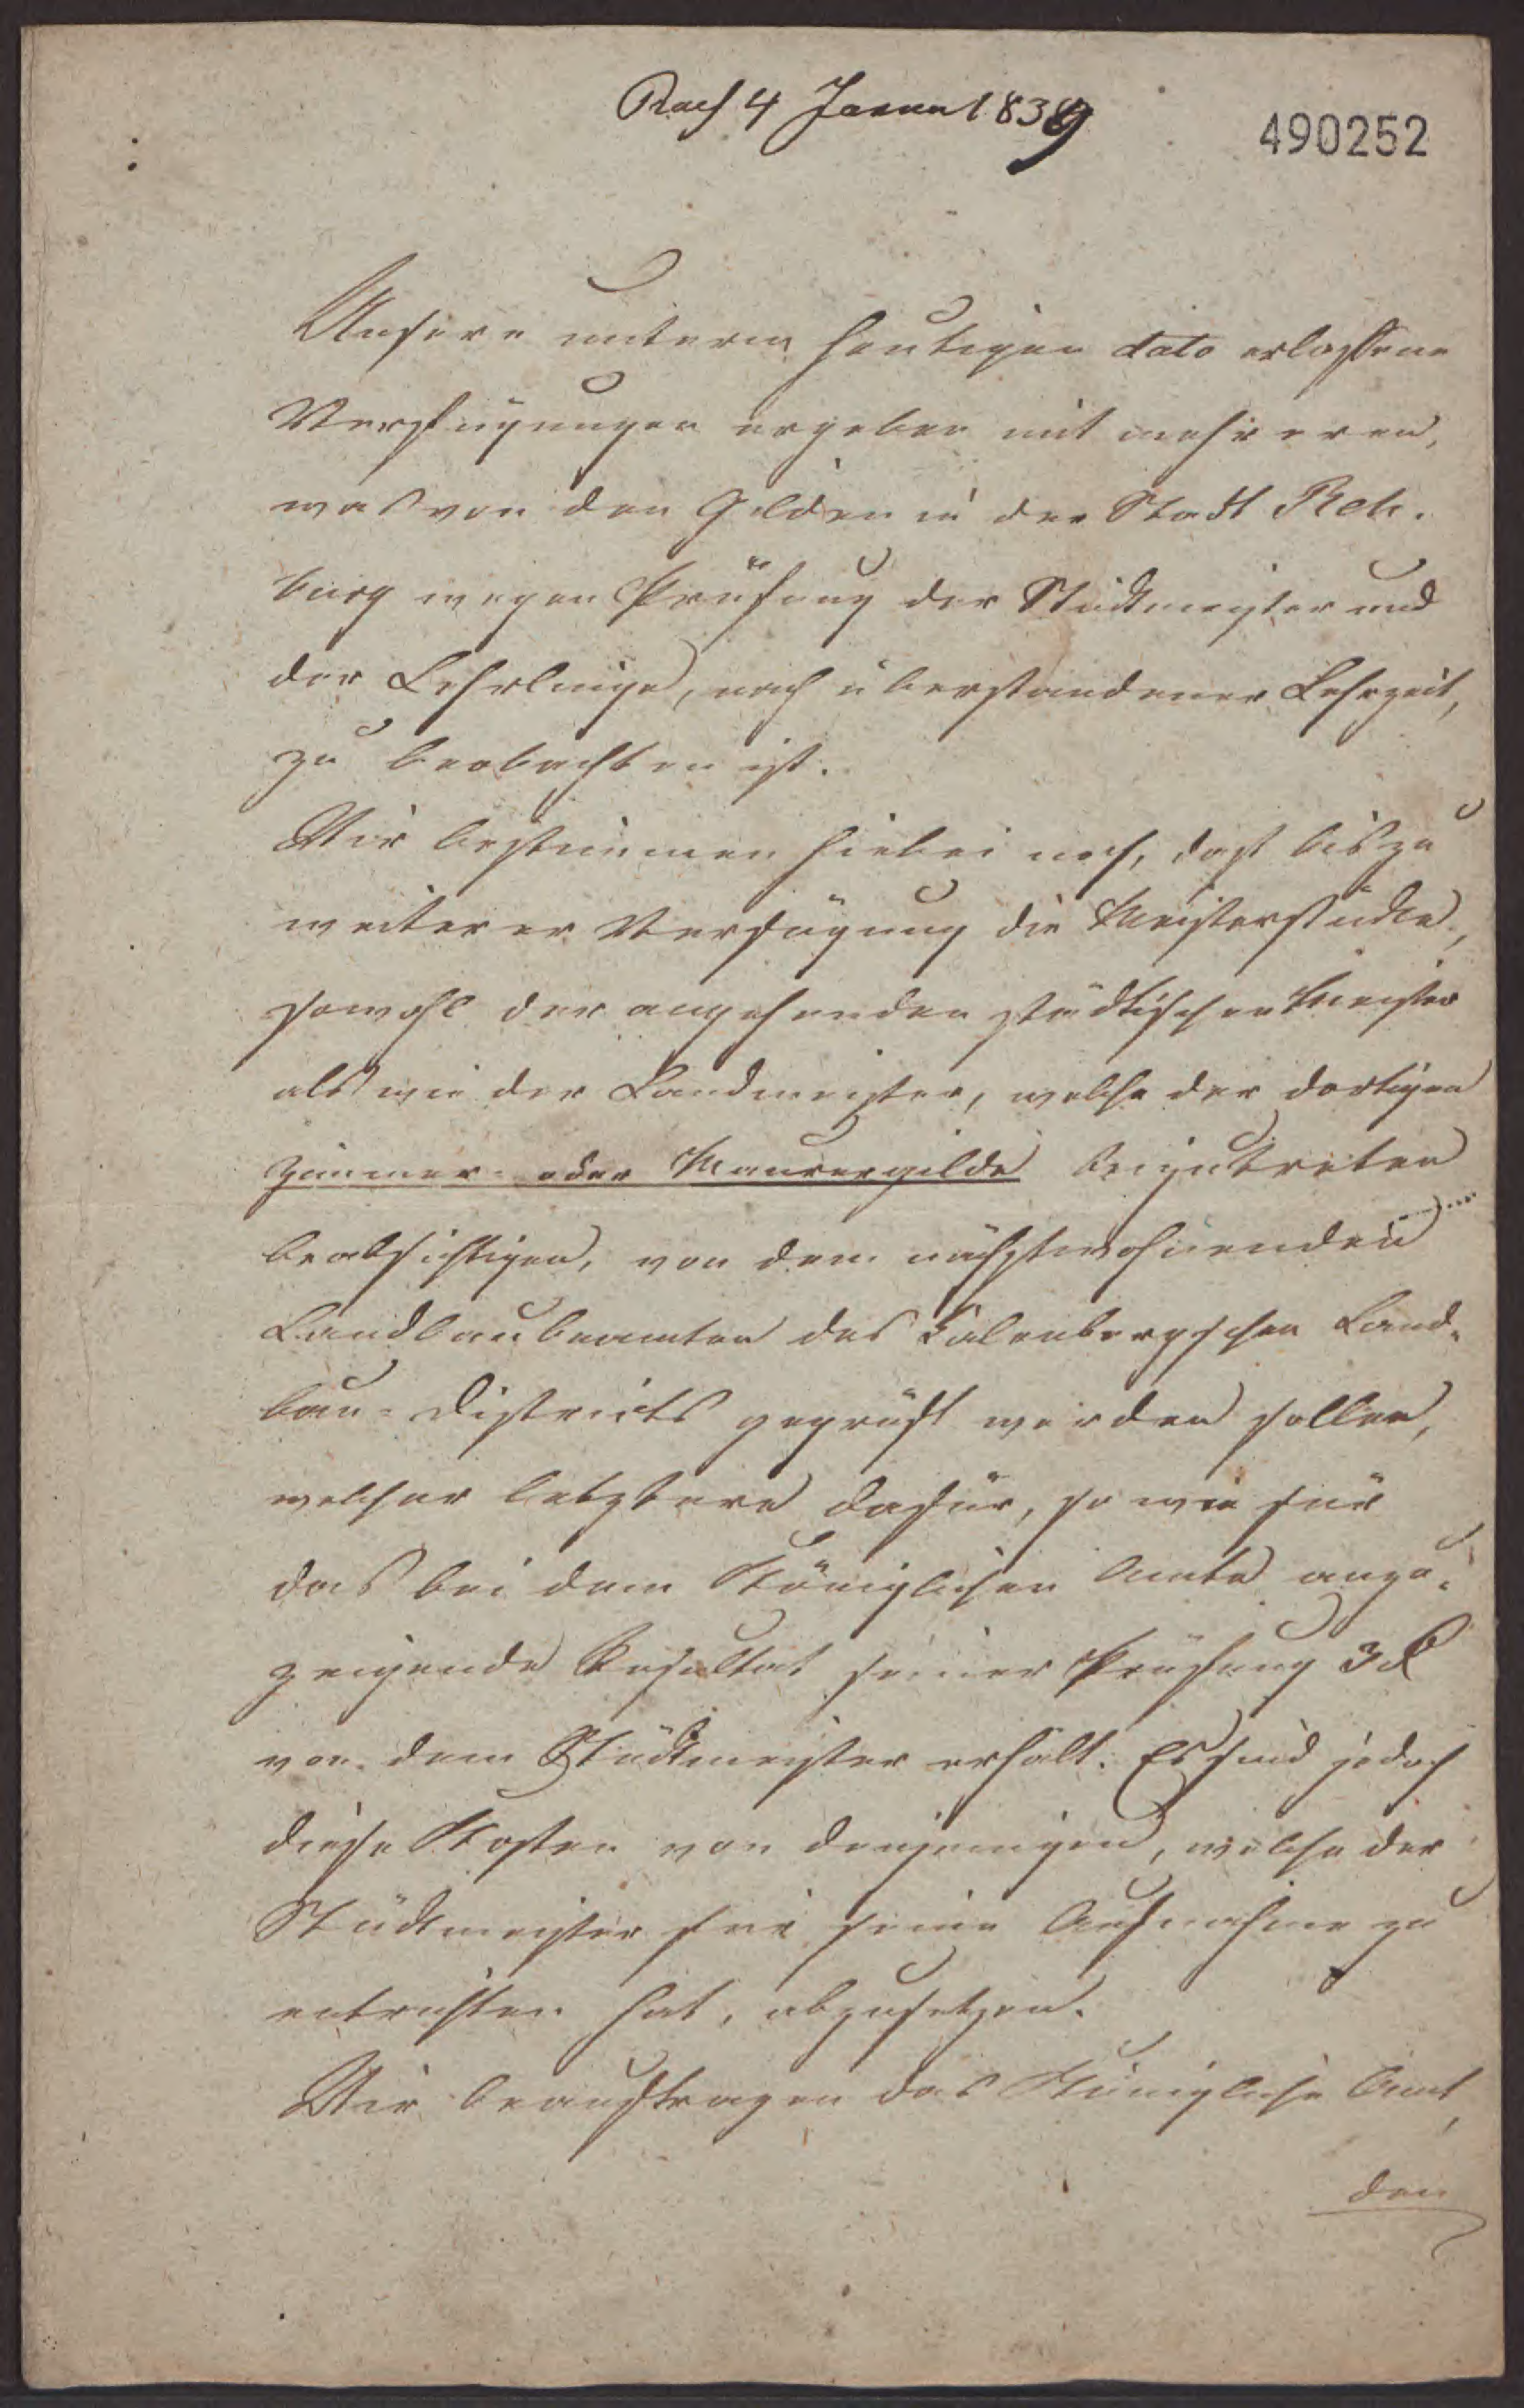 Rec 4 Januar 1839
490252
Unsere unterm heutigen dato erlassene
Verfügungen ergeben mit mehreren,
was von den Gilden in der Stadt Reh-
burg wegen Prüfung der Stückmeister und
der Lehrlinge, nach überstandener Lehrzeit,
zu beobachten ist.
Wir bestimmen hiebei noch, daß bis zu
weiterer Verfügung die Meisterstücke,
sowohl der angehenden städtischen Meister
als wie der Landmeister, welche der dortigen
Zimmer- oder Maurergilde beizutreten
beabsichtigen, von dem nächstwohnenden
Landbaubeamten des Kalenbergschen Land-
bau-Districts geprüft werden sollen,
welcher letztere dafür, so wie für
das bei dem Königlichen Amte anzu-
zeigende Resultat seiner Prüfung 3 rℓ
von dem Stückmeister erhält. Es sind jedoch
diese Kosten von denjenigen, welche der
Stückmeister für seine Aufnahme zu
entrichten hat, abzusetzen.
Wir beauftragen das Königliche Amt,
den